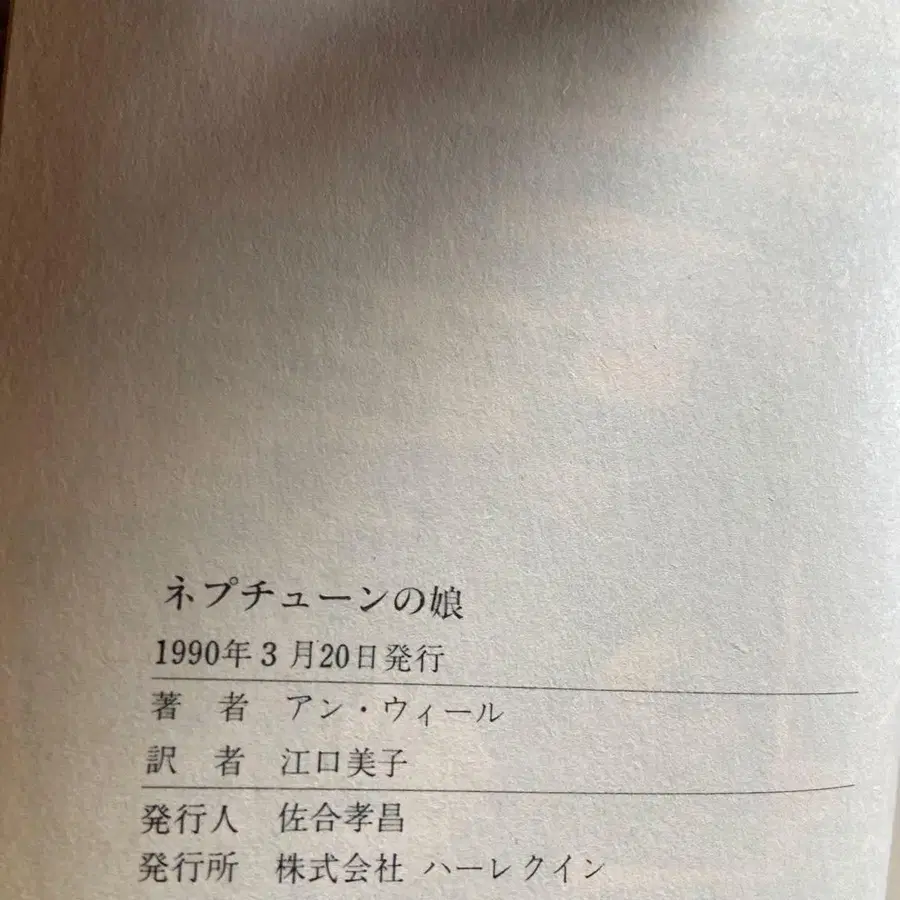 ネプチューンの娘
1990年3月20日発行
著者 アン・ウィール
訳者 江口美子
発行人 佐合孝昌
発行所 株式会社 ハーレクイン